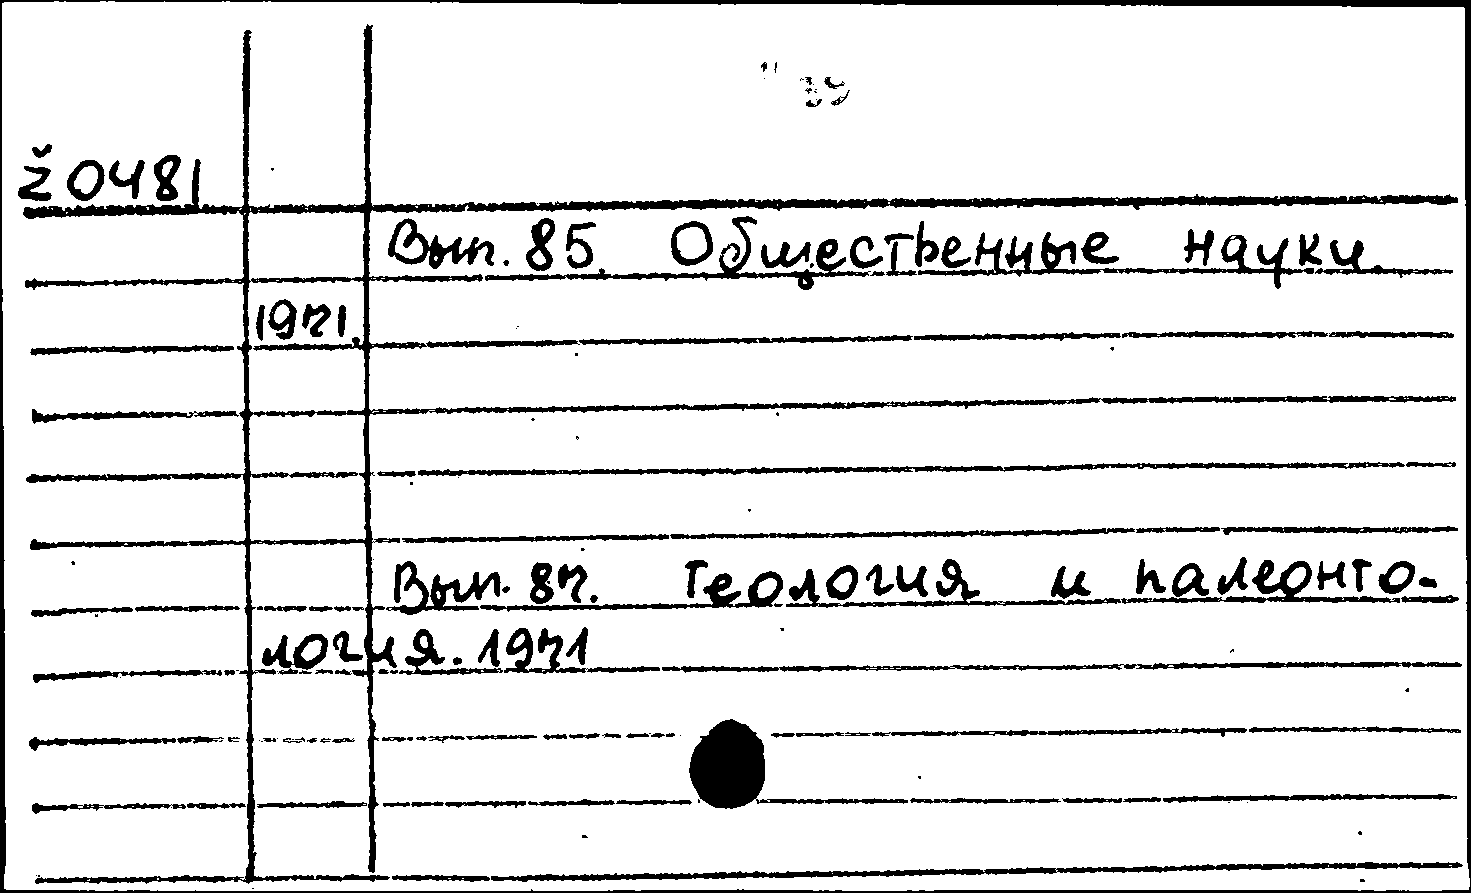 ž 0481
Вып. 85. Общественные науки.
1971.
Вып. 87. Геология и палеонто-
логия. 1971